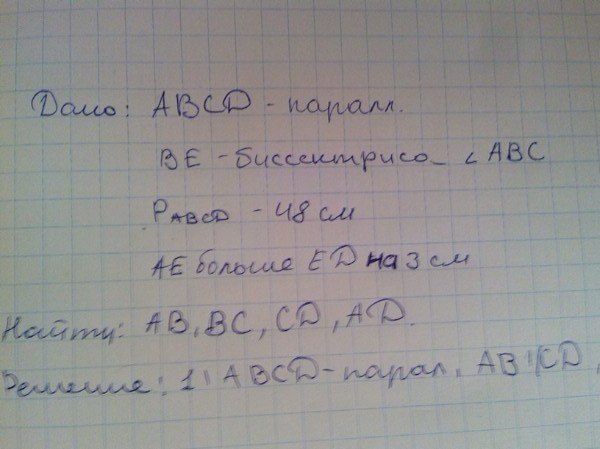 Дано: ABCD - паралл.
BE - биссектриса ∠ ABC
PABCD - 48 см
AE больше ED на 3 см
Найти: AB, BC, CD, AD.
Решение: 1) ABCD - парал, AB || CD,